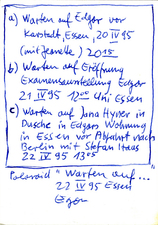 a) Warten auf Edgar vor
Karstadt, Essen, 20 IV 95
(mit Jeanette) 20 15
b) Warten auf Eröffnung
Examensausstellung Edgar
21 IV 95 12 00 Uni Essen
c) Warten auf Jana
Dusche in Edgars Wohnung
in Essen vor Abfahrt nach
Berlin mit Stefan
22 IV 95 13 05
Polaroid "Warten auf...
22 IV 95 Essen